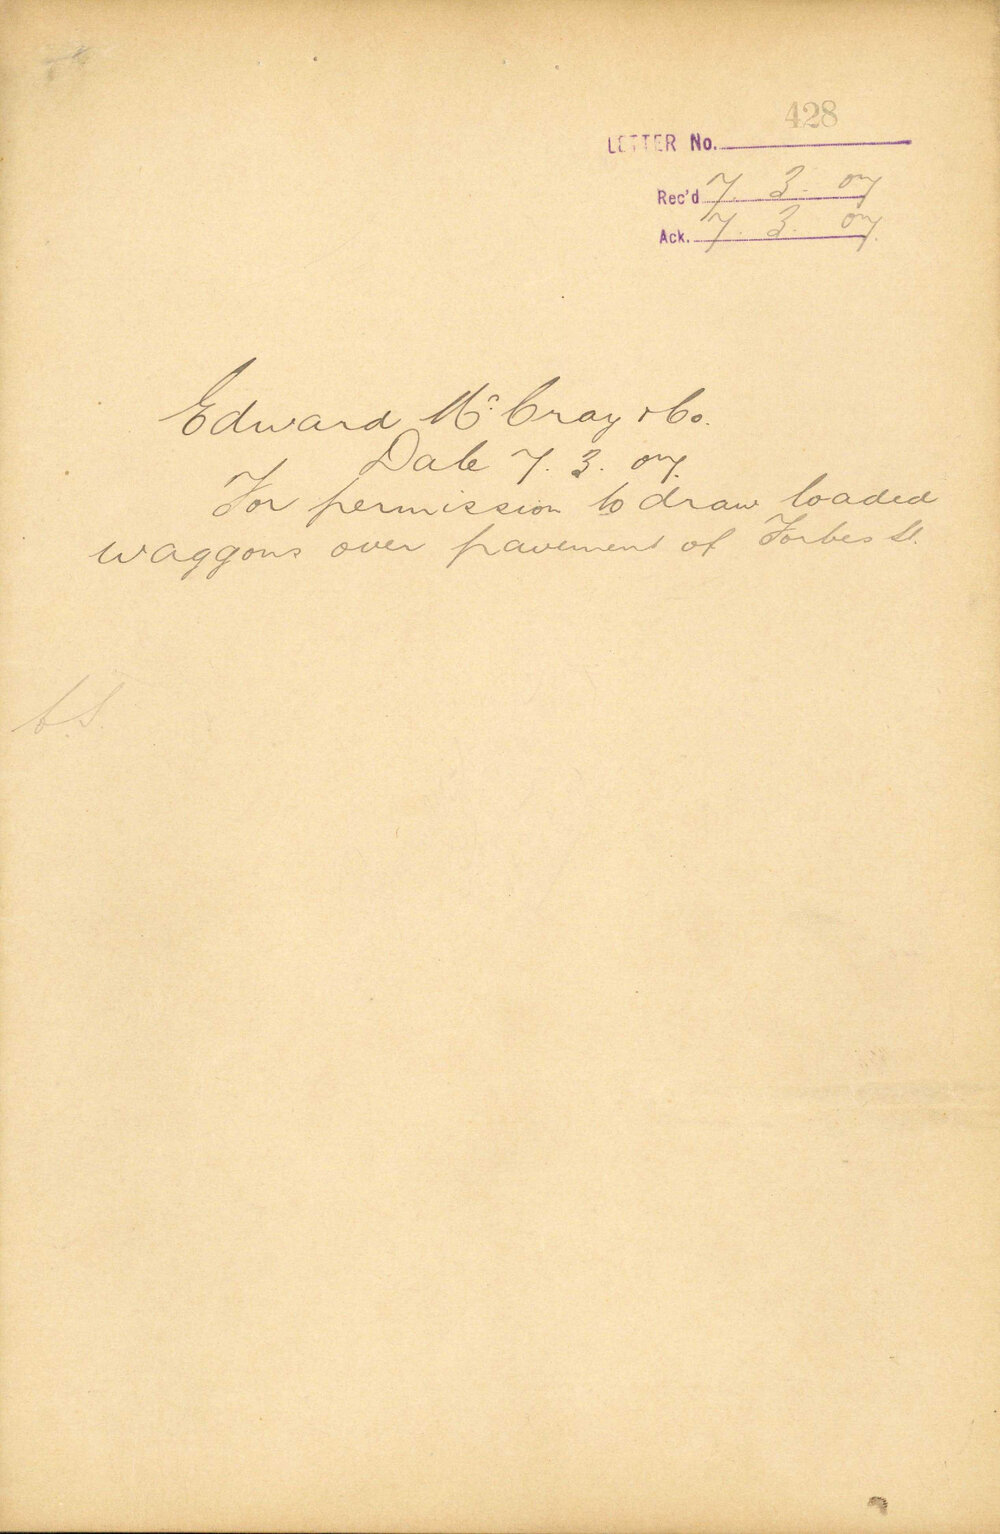 428
LETTER No.
Rec'd 7. 3. 07
Ack. 7. 3. 07.
Edward Mc. Cray & Co.
Date 7. 3. 07.
For permission to draw loaded
waggons over pavement of Forbes St.